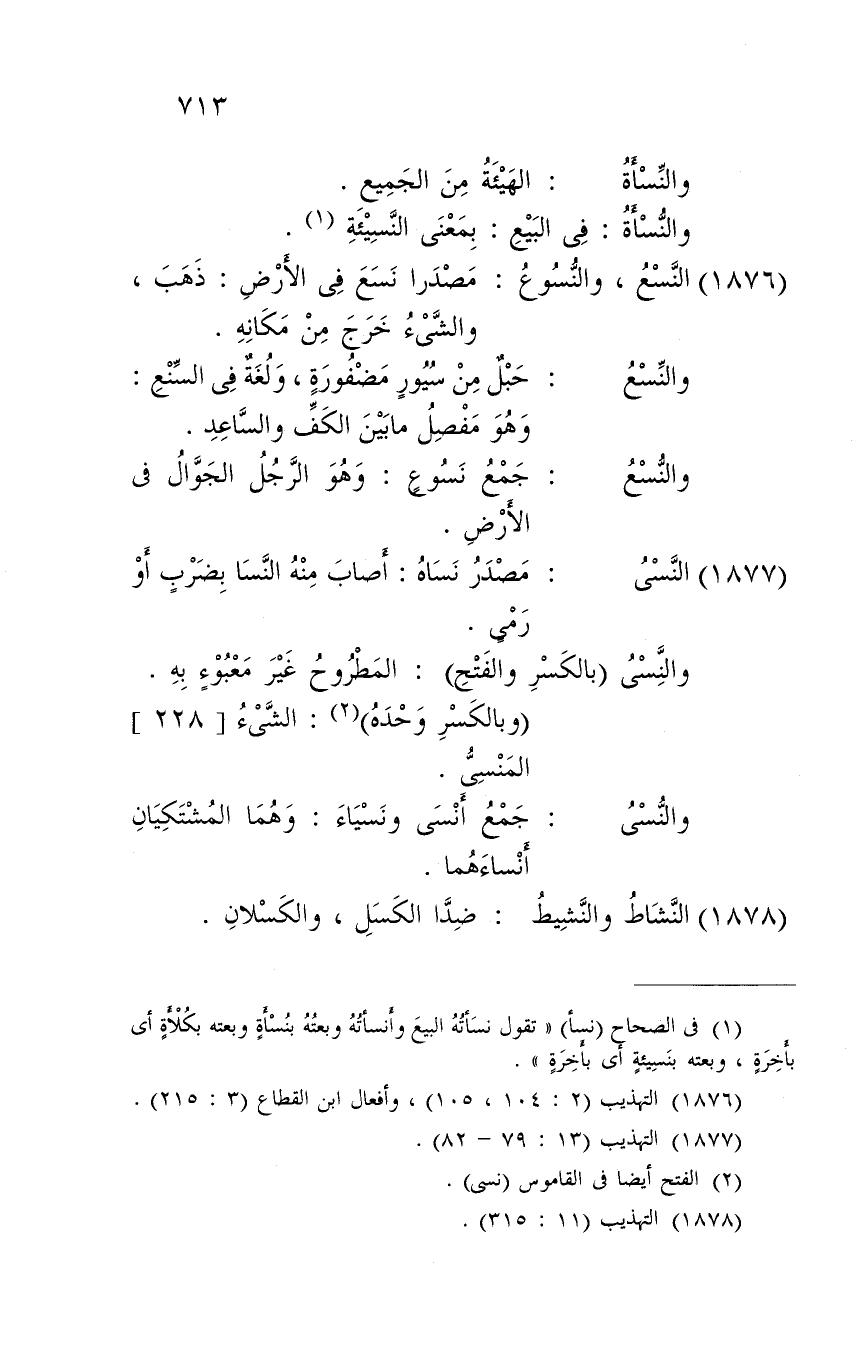 ٧١٣
والنِّسْأَةُ : الهَيْئَةُ مِنَ الجَمِيع .
والنُّسْأَةُ : فِى البَيْعِ : بِمَعْنَى النَّسِيْئَةِ (١) .
(١٨٧٦) النَّسْعُ ، والنُّسُوعُ : مَصْدَرا نَسَعَ فِى الأَرْضِ : ذَهَبَ ،
والشَّىْءُ خَرَجَ مِنْ مَكَانِهِ .
والنِّسْعُ : حَبْلٌ مِنْ سُيُورٍ مَضْفُورَةٍ ، وَلُغَةٌ فِى السِّنْعِ :
وَهُوَ مَفْصِلُ مابَيْنَ الكَفِّ والسَّاعِدِ .
والنُّسْعُ : جَمْعُ نَسُوعٍ : وَهُوَ الرَّجُلُ الجَوَّالُ فى
الأَرْضِ .
(١٨٧٧) النَّسْىُ : مَصْدَرُ نَسَاهُ : أَصابَ مِنْهُ النَّسَا بِضَرْبٍ أَوْ
رَمْىٍ .
والنَِّسْىُ (بالكَسْرِ والفَتْحِ) : المَطْرُوحُ غَيْرَ مَعْبُوْءٍ بِهِ .
(وبالكَسْرِ وَحْدَهُ)(٢) : الشَّىْءُ [ ٢٢٨ ]
المَنْسِىُّ .
والنُّسْىُ : جَمْعُ أَنْسَى ونَسْيَاءَ : وَهُمَا المُشْتَكِيَانِ
أَنْساءَهُما .
(١٨٧٨) النَّشَاطُ والنَّشِيطُ : ضِدَّا الكَسَلِ ، والكَسْلانِ .
(١) فى الصحاح (نسأ) « تقول نسَأتُهُ البيعَ وأَنسأتُهُ وبعتُهُ بنُسْأَةٍ وبعته بكُلْأَةٍ أى
بأَخِرَةٍ ، وبعته بنَسِيئةٍ أى بأَخِرَةٍ » .
(١٨٧٦) التهذيب (٢ : ١٠٤ ، ١٠٥) ، وأفعال ابن القطاع (٣ : ٢١٥) .
(١٨٧٧) التهذيب (١٣ : ٧٩ – ٨٢) .
(٢) الفتح أيضا فى القاموس (نسى) .
(١٨٧٨) التهذيب (١١ : ٣١٥) .